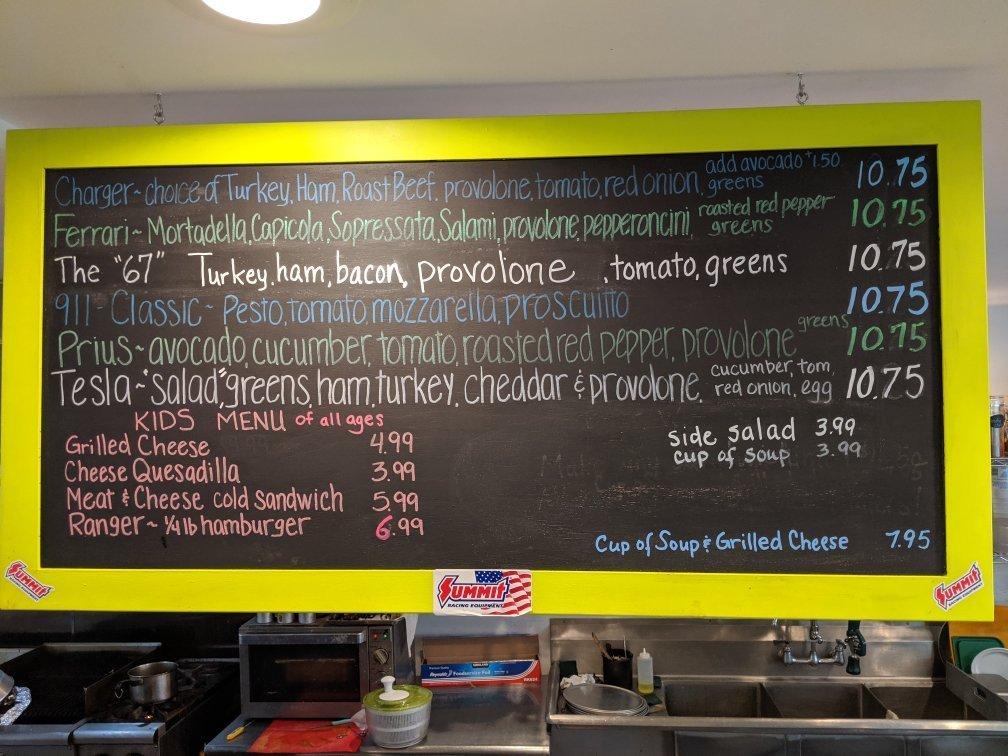 Charger~ choice of Turkey, Ham, Roast Beef, provolone, tomato, red onion, greens add avocado +1.50 10.75
Ferrari~ Mortadella, Capicola, Sopressata, Salami, provolone, pepperoncini, roasted red pepper greens 10.75
The "67" Turkey, ham, bacon, provolone, tomato, greens 10.75
911 - Classic~ Pesto, tomato, mozzarella, proscuitto 10.75
Prius~ avocado, cucumber, tomato, roasted red pepper, provolone greens 10.75
Tesla~ "salad" greens, ham, turkey, cheddar & provolone, cucumber, tom, red onion, egg 10.75
KIDS MENU of all ages
Grilled Cheese 4.99
Cheese Quesadilla 3.99
Meat & Cheese cold sandwich 5.99
Ranger~ 1/4 lb hamburger 6.99
side salad 3.99
cup of soup 3.99
Cup of Soup & Grilled Cheese 7.95
SUMMIT
SUMMIT
RACING EQUIPMENT
SUMMIT
Reynolds Foodservice Foil